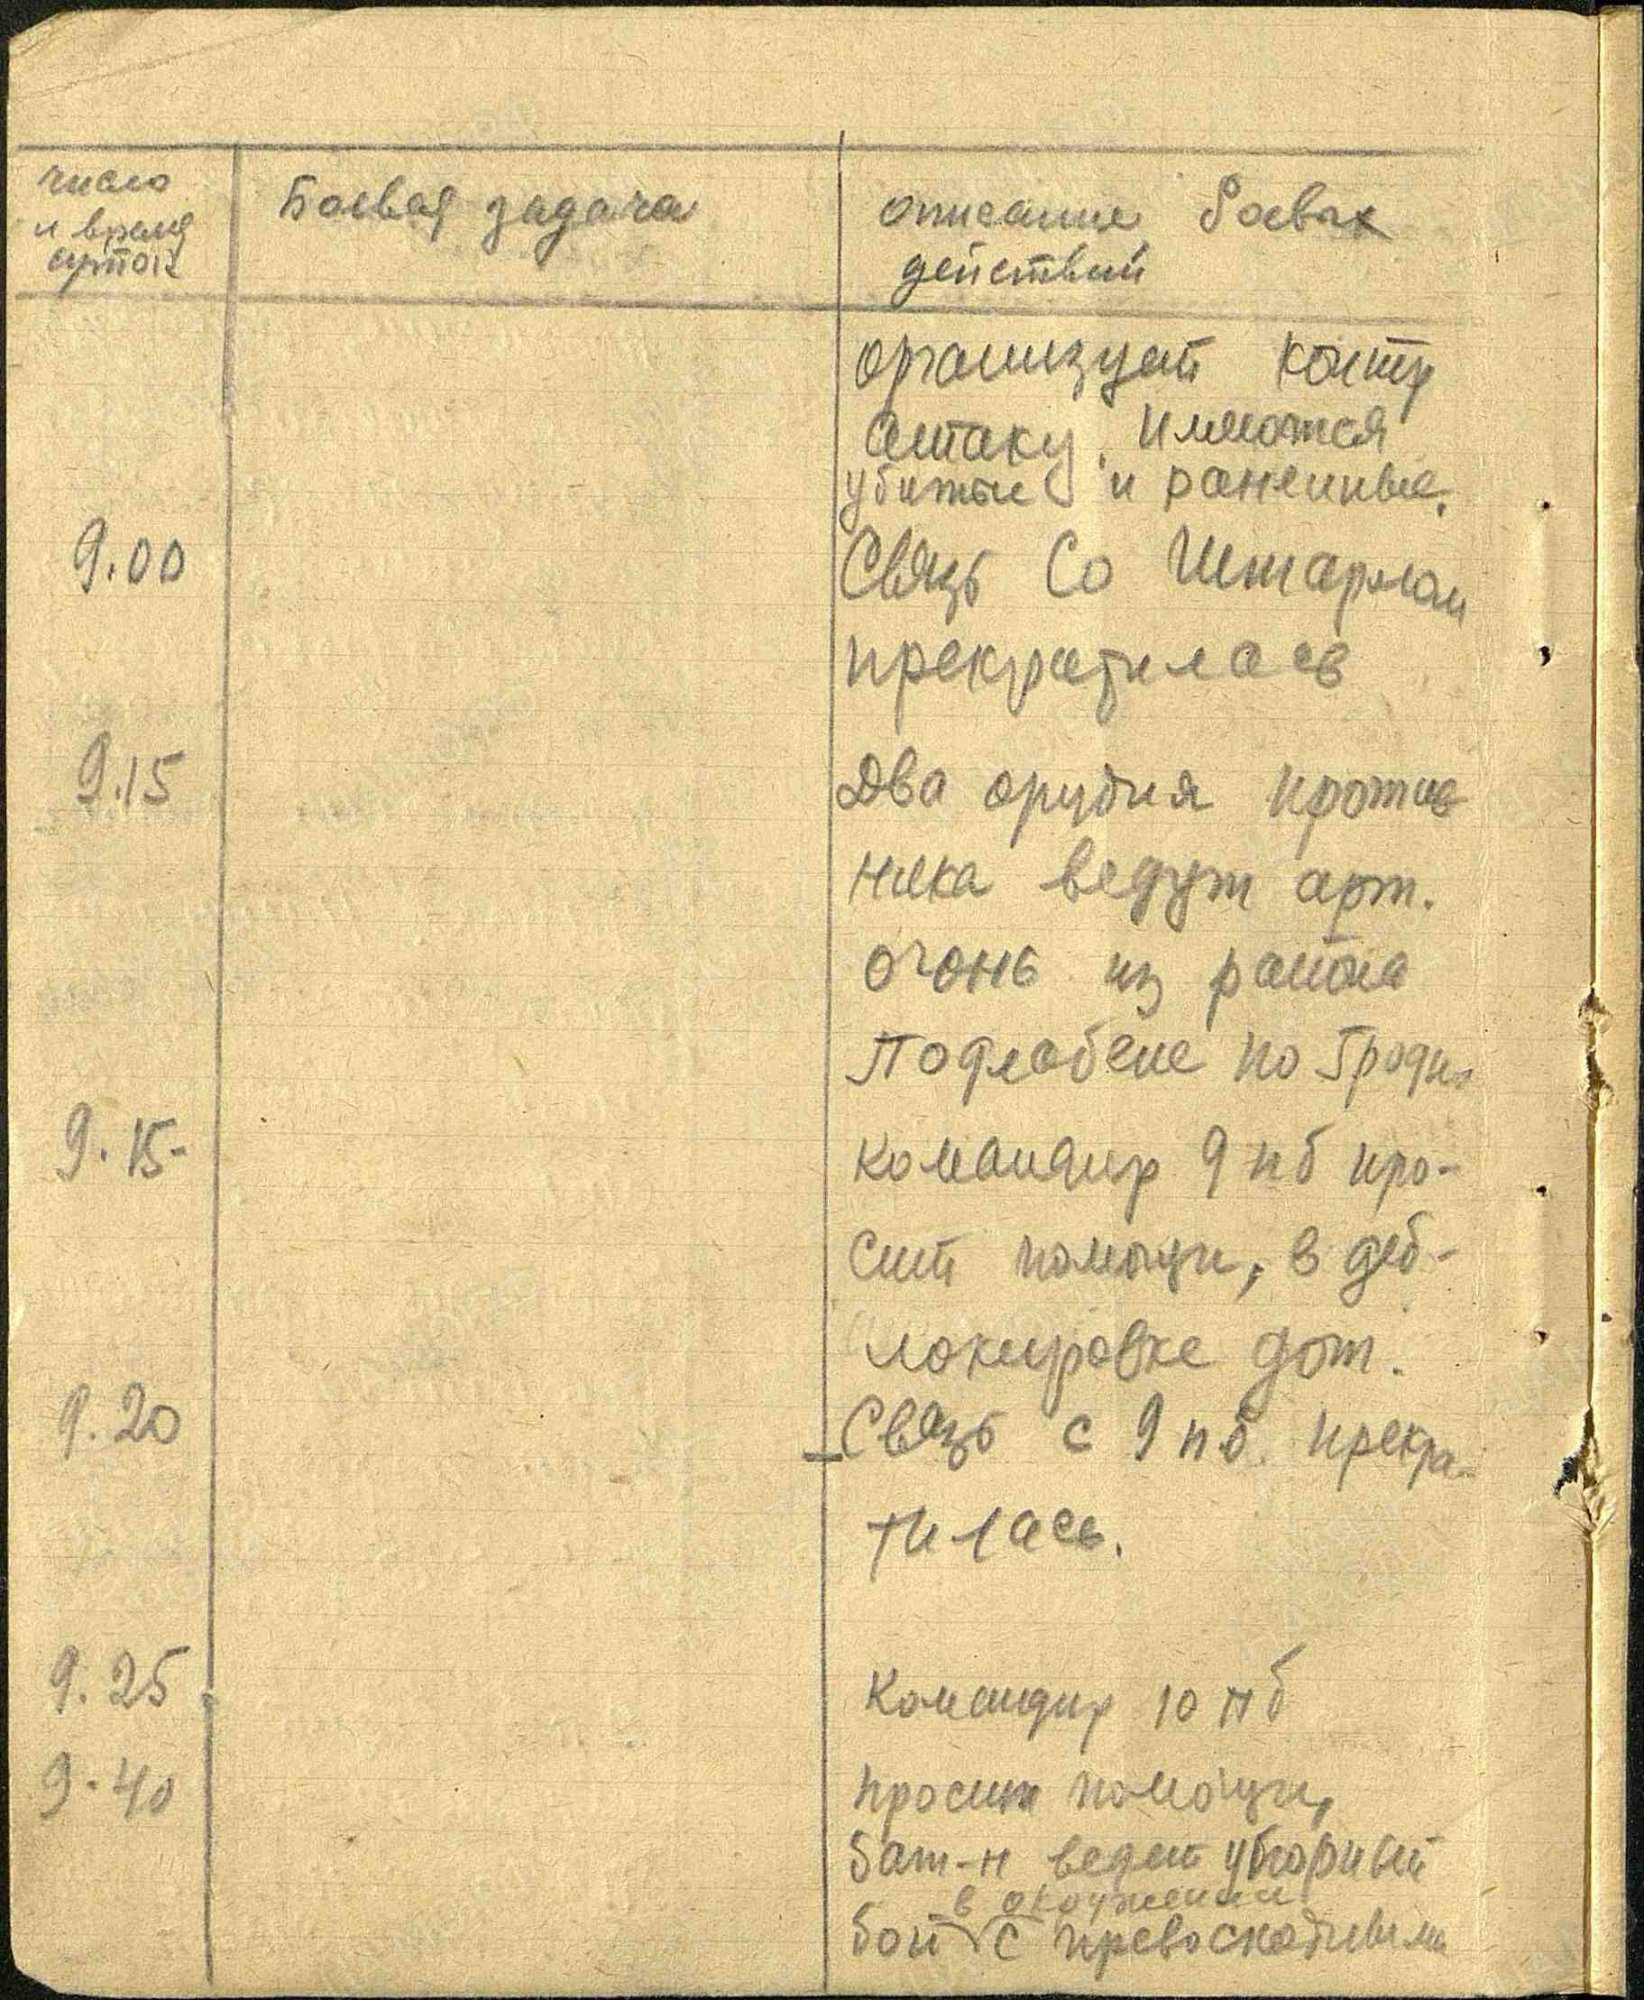 число
и время
суток
Боевая задача
описание боевых
действий
организует контр
атаку. Имеются
убитые и раненные.
9.00
Связь Со Штармом
прекратилась
9.15
Два орудия против
ника ведут арт.
огонь из района
Подлабене по Гродно
9.15-
командир 9 пб про-
сит помощи, в деб-
локировке дот.
9.20
Связь с 9 пб. прекра-
тилась.
9.25
Командир 10 пб
9-40
просит помощи,
бат-н ведет упорный
в окружении
бой с превосходными